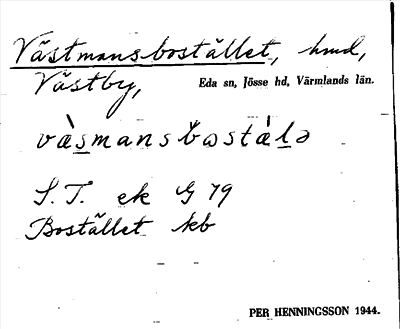 Västmansbostället, hmd,
Västby, Eda sn, Jösse hd, Värmlands län.
vàsmansbostàlə
S.T. ek G 79
Bostället kb
PER HENNINGSSON 1944.